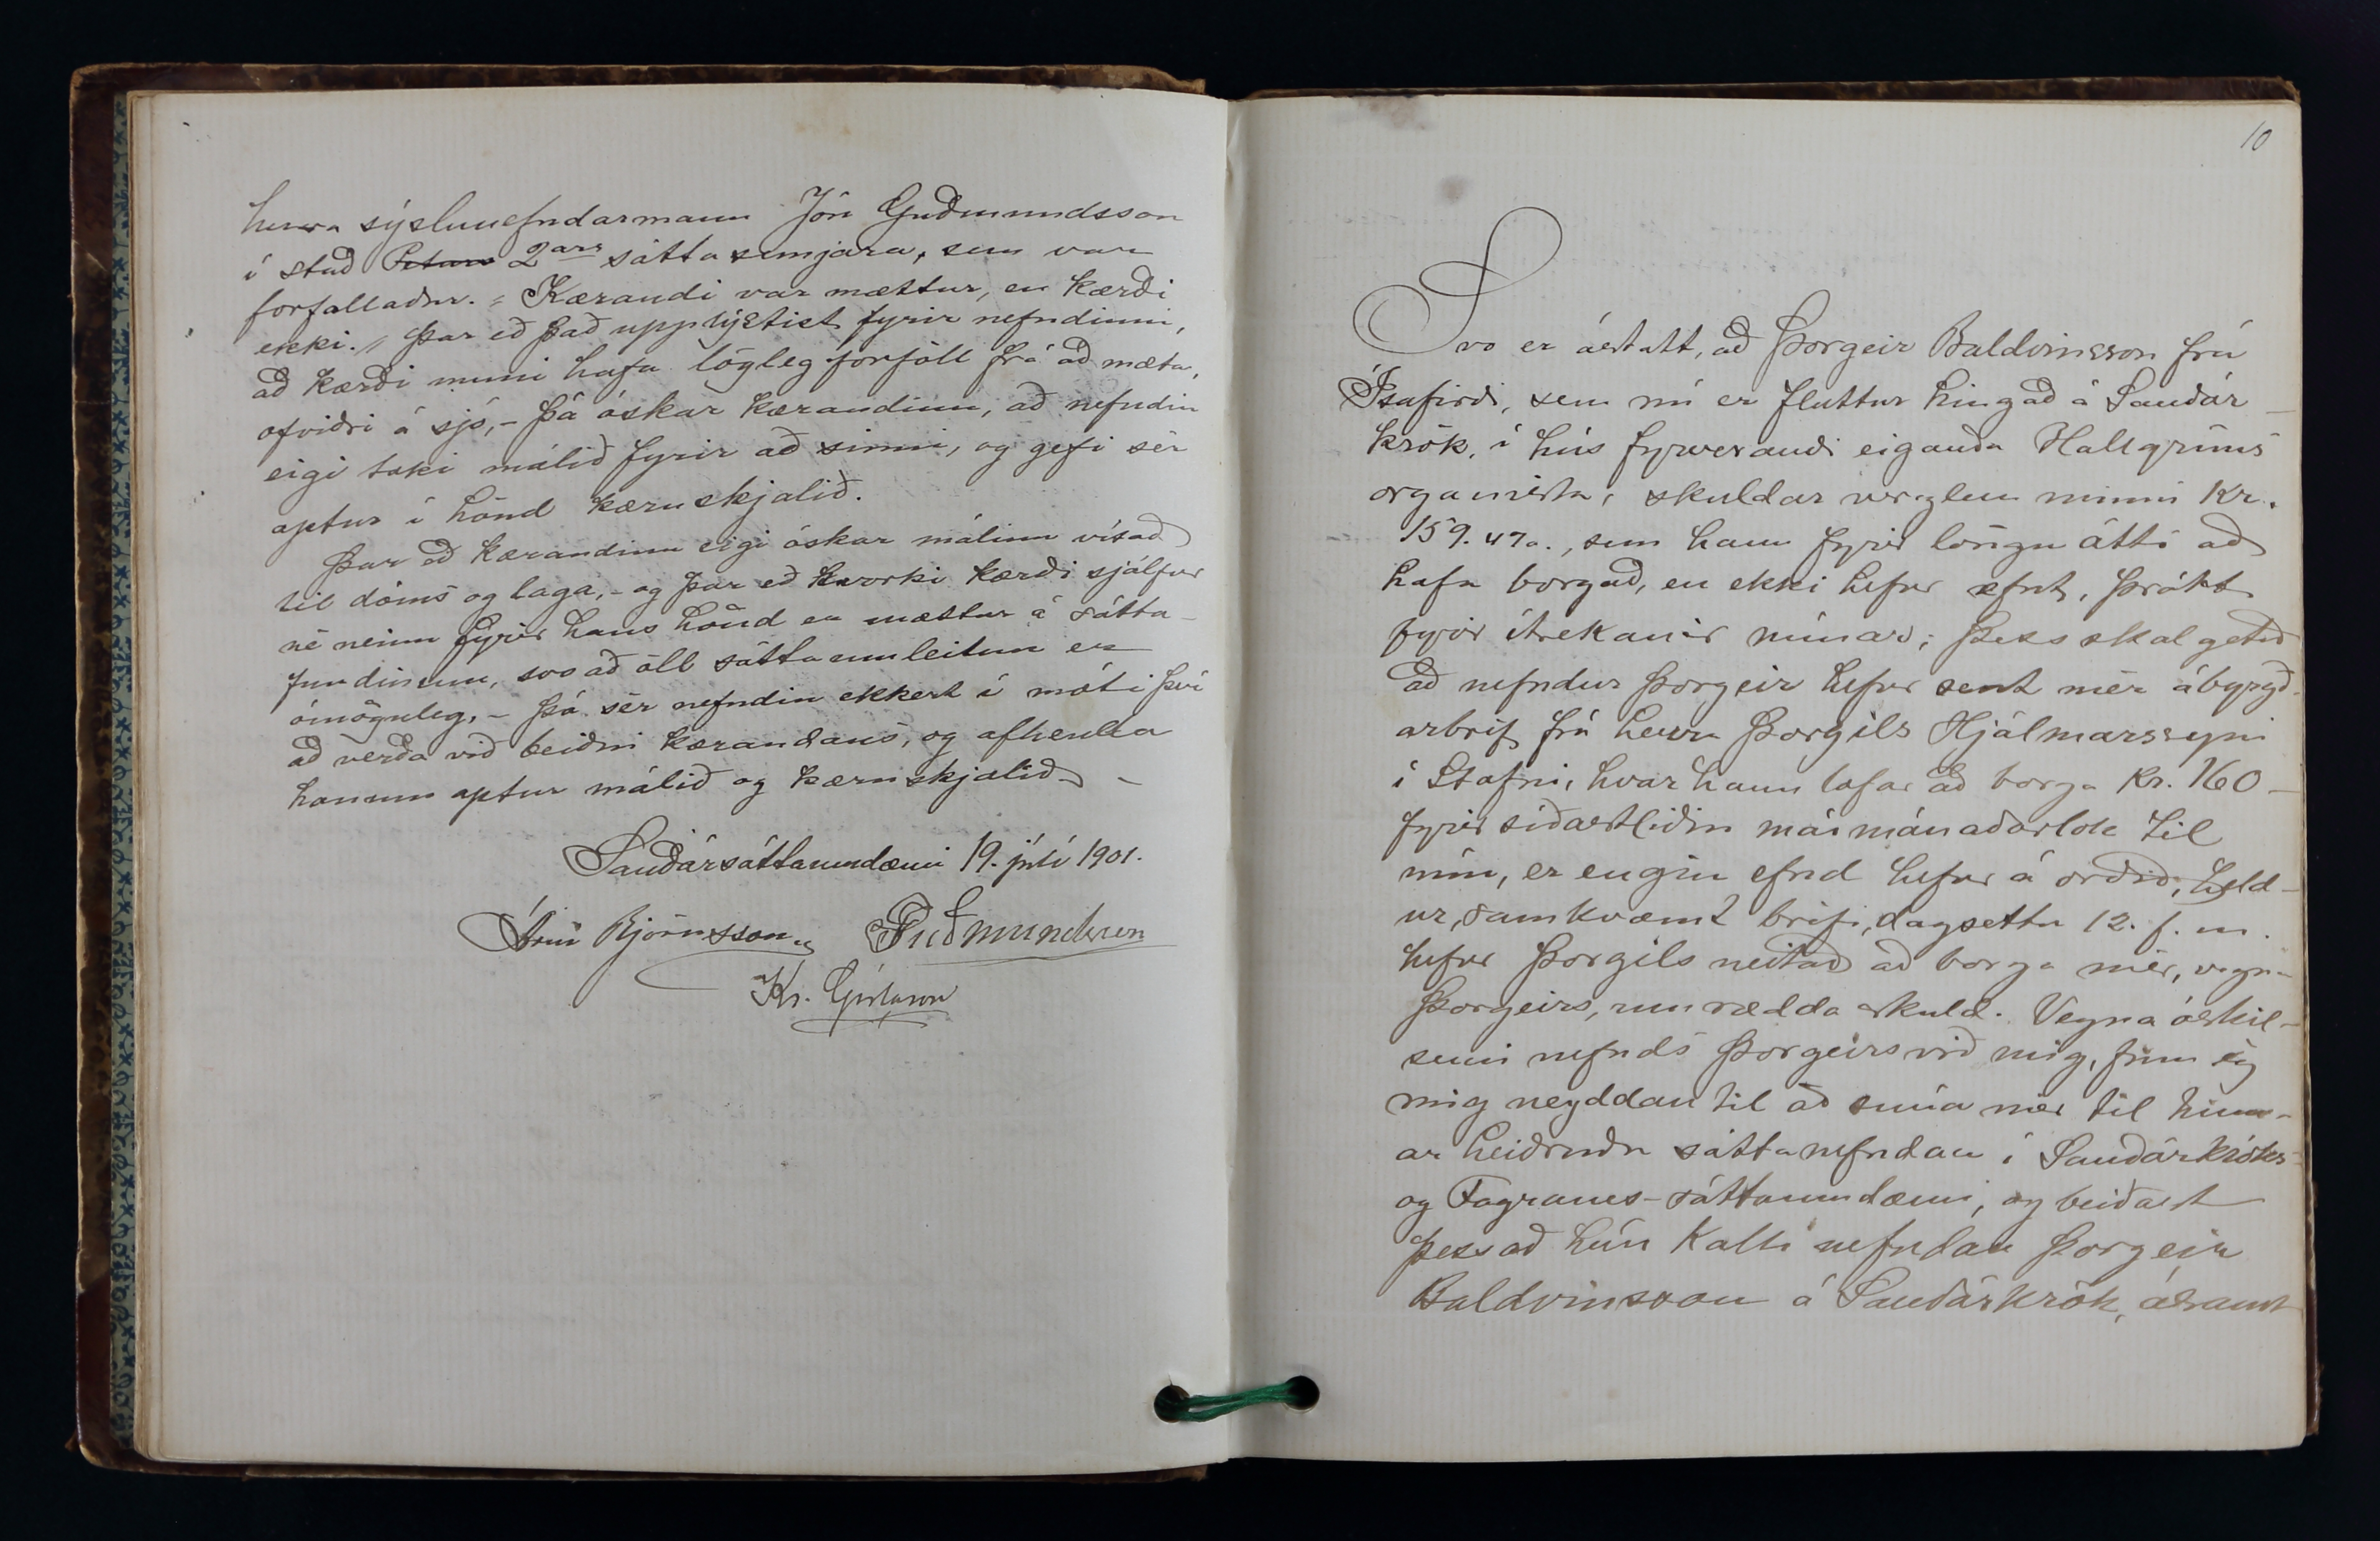 herra sýslunefndarmann Jón Guðmundsson
í stað Peturs 2ars sáttasemjara, sem var
forfallaður. = Kærandi var mættur, en kærði
ekki. // Þar eð það upplýstist fyrir nefndinni,
að kærði muni hafa lögleg forföll frá að mæta,
ofviðri á sjó, - þá óskar kærandinn, að nefndin
eigi taki málið fyrir að sinni, og gefi sér
aptur í hönd kæruskjalið.
Þar eð kærandinn eigi óskar málinu vísað
til dóms og laga, - og þar eð hvorki kærði sjálfur
né neinn fyrir hans hönd er mættur á sátta-
fundinum, svo að öll sáttaumleitun er
ómöguleg, - þá sér nefndin ekkert í móti því
að verða við beiðni kærandans, og afhenda
honum aptur málið og kæruskjalið -
Sauðársáttaumdæmi 19. júlí 1901.
Árni Björnsson JGuðmundsson
Kr. Gíslason
10
Svo er ástatt, að Þorgeir Baldvinsson frá
Ísafirði, sem nú er fluttur hingað á Sauðár-
krók, í hús fyrverandi eiganda Hallgríms
organista, skuldar verzlun minni Kr.
159.47a., sem hann fyrir löngu átti að
hafa borgað, en ekki hefur efnt, þrátt
fyrir ítrekanir mínar; Þess skal getið
að nefndur Þorgeir hefur sent mér ábyrgð-
arbrif frá herra Þorgils Hjálmarssyni
í Stafni, hvar hann lofar að borga Kr. 160 -
fyrir síðastliðin maímánaðarlok til
mín, er engin efnd hefur á orðið, held-
ur, samkvæmt brifi, dagsettu 12. f. m.
hefur Þorgils neitað að borga mér, vegna
Þorgeirs, umrædda skuld. Vegna óskil-
semi nefnds Þorgeirs við mig, finn ég
mig neyddan til að snúa mér til hinn-
ar heiðruðu sáttanefndar í Sauðárkróks-
og Fagranes-sáttaumdæmi, og beiðast
þess að hún kalli nefndan Þorgeir
Baldvinsson á Sauðárkrók, ásamt